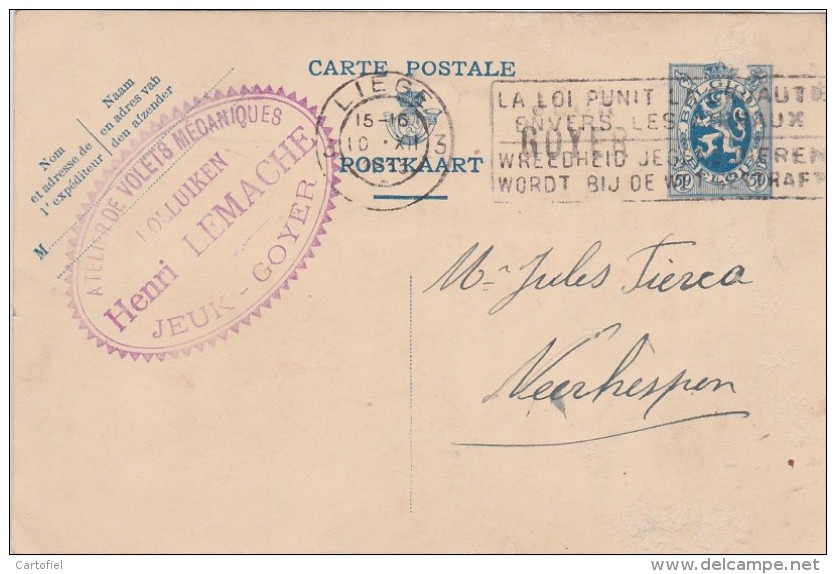 CARTE POSTALE
POSTKAART
Naam
en adres van
den afzender
Nom
et adresse de
l'expéditeur
M
ATELIER DE VOLETS MÉCANIQUES
ROLLUIKEN
Henri LEMACHE
JEUK - GOYER
LIEGE
3 3
15-16
10 XII
LA LOI PUNIT
ENVERS LES
WREEDHEID JEGENS
WORDT BIJ DE
GOYER
BELGIQUE
BELGIE
50 50
Mr Jules Tierca
Neerhespen
Cartofiel
www.delcampe.net